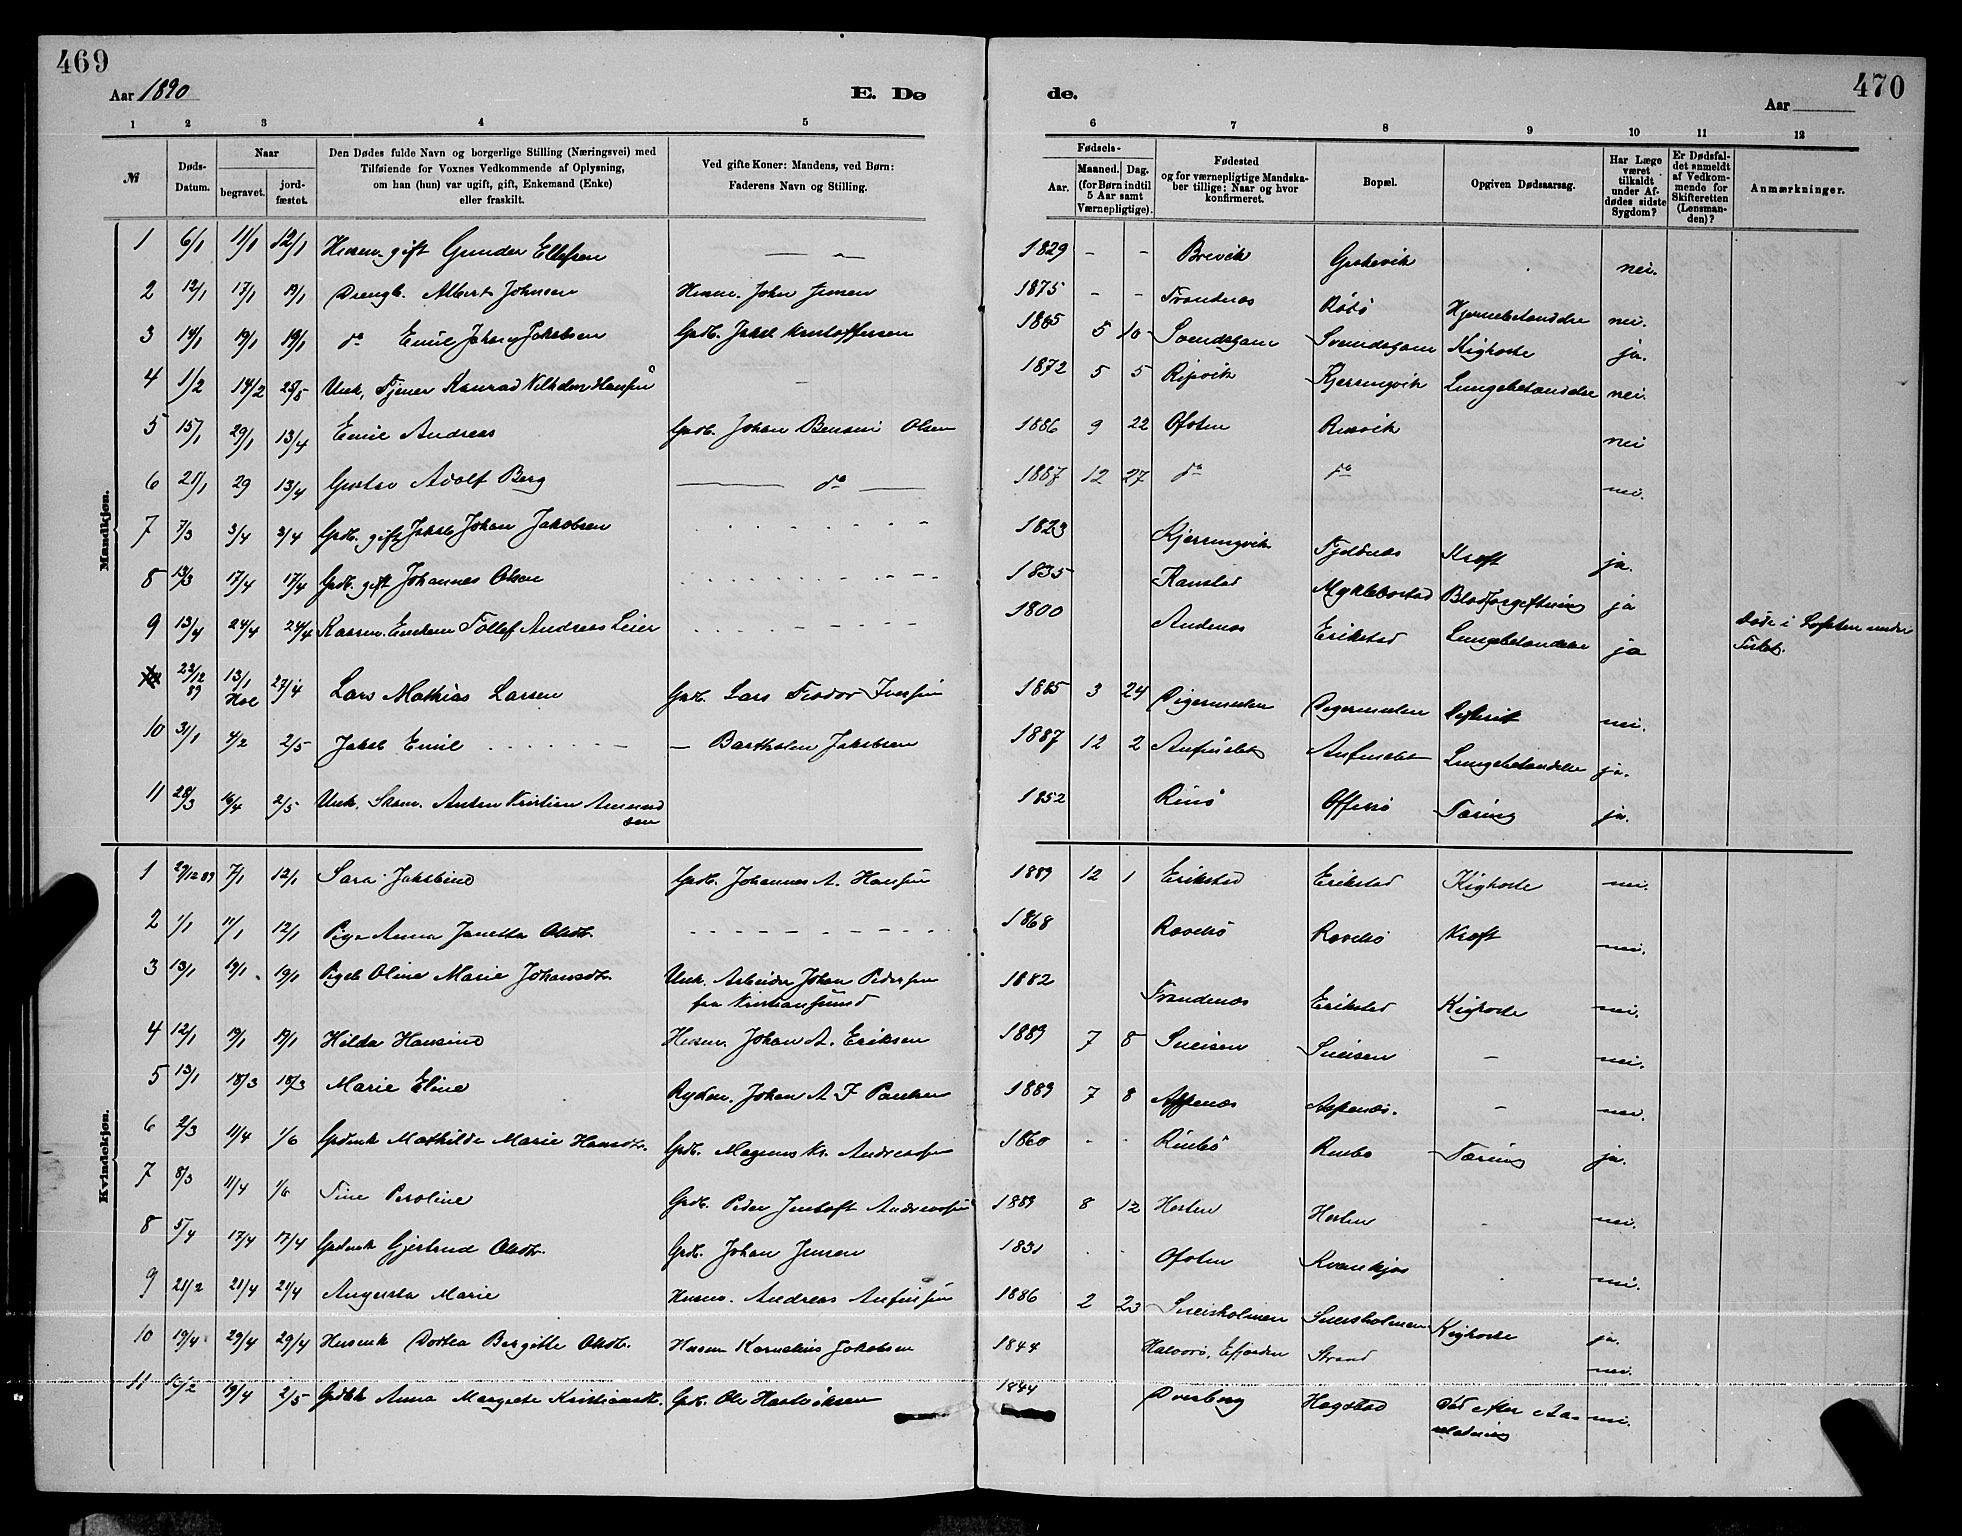 469
470
Aar 1890
E. Dø
de.
Aar
1 2 3 4 5 6 7 8 9 10 11 12
№
Døds-
Datum.
Naar
begravet.
jord-
fæstet.
Den Dødes fulde Navn og borgerlige Stilling (Næringsvei) med
Tilføiende for Voxnes Vedkommende af Oplysning,
om han (hun) var ugift, gift, Enkemand (Enke)
eller fraskilt.
Ved gifte Koner: Mandens, ved Børn:
Faderens Navn og Stilling.
Fødsels-
Aar.
Maaned. Dag.
(for Børn indtil
5 Aar samt
Værnepligtige).
Fødested
og for værnepligtige Mandska-
ber tillige: Naar og hvor
konfirmeret.
Bopæl.
Opgiven Dødsaarsag.
Har Læge
været
tilkaldt
under Af-
dødes sidste
Sygdom?
Er Dødsfal-
det anmeldt
af Vedkom-
mende for
Skifteretten
(Lensman-
den)?
Anmærkninger.
Mandkjøn.
1 6/1 11/1 12/1 Husm. gift Gunder Ellefsen 1829 - - Brevik nei.
2 12/1 17/1 19/1 Drengb. Albert Johnsen Husm. John Jensen 1875 - - Trondenæs Rödö Hjernebetændelse nei.
3 14/1 19/1 19/1 do Emil Johan Jakobsen Grdb. Jakob Kristoffersen 1885 5 10 Svendsgam Svendsgam Kighoste ja.
4 1/2 14/2 25/5 Unk. Tjener Konrad Vilhelm Hansen - 1872 5 5 Ripvik Kjerringvik Lungebetændelse nei.
5 15/1 29/1 13/4 Emil Andreas Grdb. Johan Olsen 1886 9 22 Ofoten nei
6 21/1 29 13/4 Gustav Adolf Berg do 1887 12 27 do do nei.
7 7/3 3/4 3/4 Grdb. gift Jakob Johan Jakobsen 1823 Kjerringvik Fjeldnæs Kræft ja.
8 13/3 17/4 17/4 Grdb. gift Johannes Olsen 1835 Kanstad Myklebostad Blodforgiftning ja
9 13/4 24/4 24/4 Enkem. Tollef Andreas Leier 1800 Andenæs Erikstad Lungebetændelse ja Døde i Lofoten under
Fisket.
23/12 89 13/1 Hol 27/4 Lars Mathias Larsen Grdb. Lars Teodor Iversen 1885 3 24 Digermulen Digermulen Difterit nei.
10 31/1 4/2 2/5 Jakob Emil - Bartholm Jakobsen 1887 12 2 Lungebetændelse ja.
11 28/3 16/4 2/5 Unk. Anton Kristian Amund
sen 1852 Tæring ja.
Kvindekjøn.
1 29/12 89 7/1 12/1 Sara Jakobine Grdb. Johannes A. Hansen 1889 12 1 Erikstad Erikstad Kighoste nei.
2 1/1 11/1 12/1 Pige Anna Janetta Olsdtr. 1868 Kræft nei.
3 13/1 19/1 19/1 Pigeb. Oline Marie Johansdtr. Unk. Arbeider Johan Pedersen
fra Kristiansund 1882 Trondenæs Erikstad Kighoste nei.
4 12/1 19/1 19/1 Hilda Hansine Husm. Johan A. Eriksen 1889 7 8 Sneisen Sneisen - nei.
5 13/1 18/3 18/3 Marie Eline Rydm. Johan A. F. Paulsen 1889 7 8 - nei.
6 2/3 11/4 1/6 Mathilde Marie Hansdtr. Grdb. Magnus Kr. Andreassen 1860 - - Rinbö Rinbö Tæring ja.
7 8/3 11/4 1/6 Tine Peroline Grdb. Peder Jentoft Andreassen 1889 8 12 Hesten Hesten - nei.
8 5/4 17/4 17/4 Gjertrud Olsdtr. Grdb. Johan Jensen 1831 Ofoten nei.
9 21/2 21/4 21/4 Augusta Marie Husm. Andreas Anfinsen 1886 2 23 Sneisholmen Sneisholmen Kighoste ja.
10 19/4 29/4 29/4 Dortea Bergitte Olsdtr. Husm Kornelius Jakobsen 1844 Halvarö, Efjorden Strand nei.
11 15/2 19/4 2/5 Anna Margrete Kristiansdtr. Grdb. Ole 1844 Dverberg Hagstad Død efter Aa-
reladning nei.